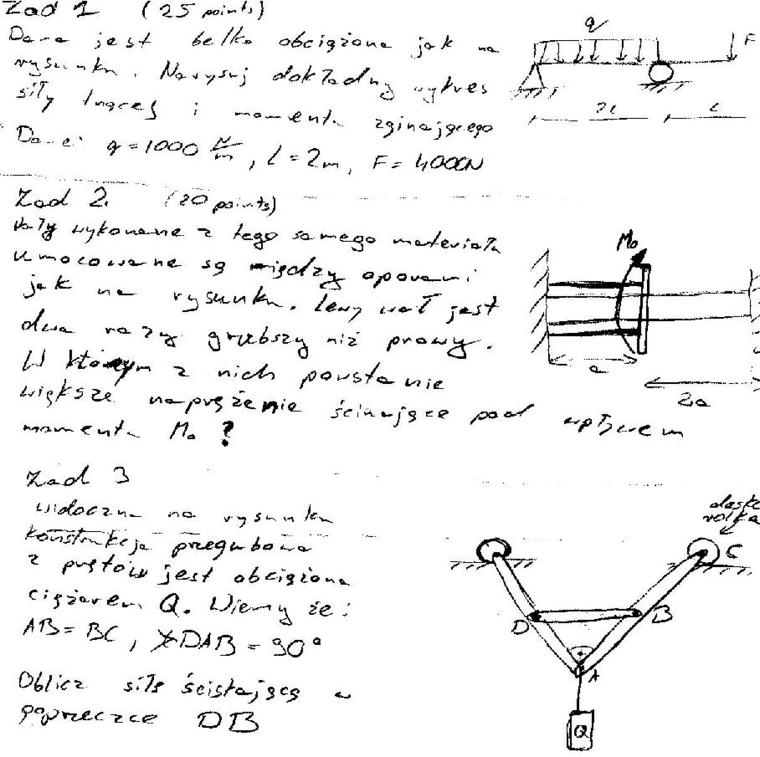 Zad 1 (25 points)
Dana jest belka obciążona jak na
rysunku. Narysuj dokładny wykres
siły tnącej i momentu zginającego
Dane: q=1000 N/m, l=2m, F=4000N
q
F
2l
l
Zad 2. (20 points)
Wały wykonane z tego samego materiału
umocowane są między oporami
jak na rysunku. Lewy wał jest
dwa razy grubszy niż prawy.
W którym z nich powstanie
większe naprężenie ścinające pod wpływem
momentu Mo ?
Mo
a
2a
Zad 3
Widoczna na rysunku
konstrukcja przegubowa
z prętów jest obciążona
ciężarem Q. Wiemy że:
AB=BC, ∢DAB=90°
Oblicz siłę ściskającą w
poprzeczce DB
C
D
B
A
Q